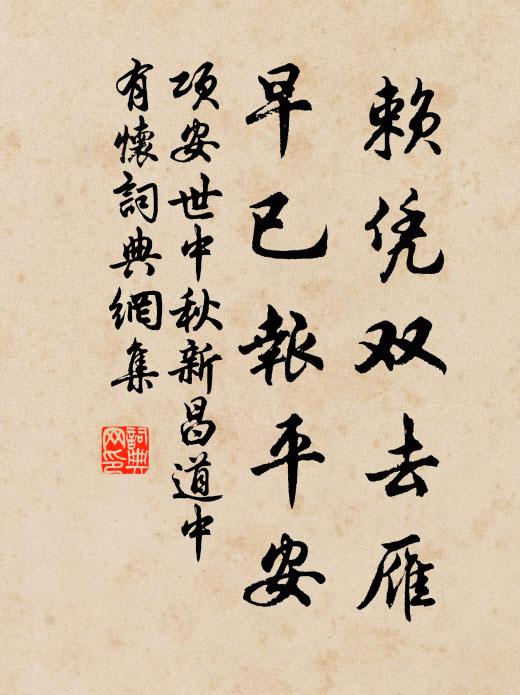 赖凭双去雁
早已報平安
项安世中秋新昌道中
有懷詞典網集
詞典
网印